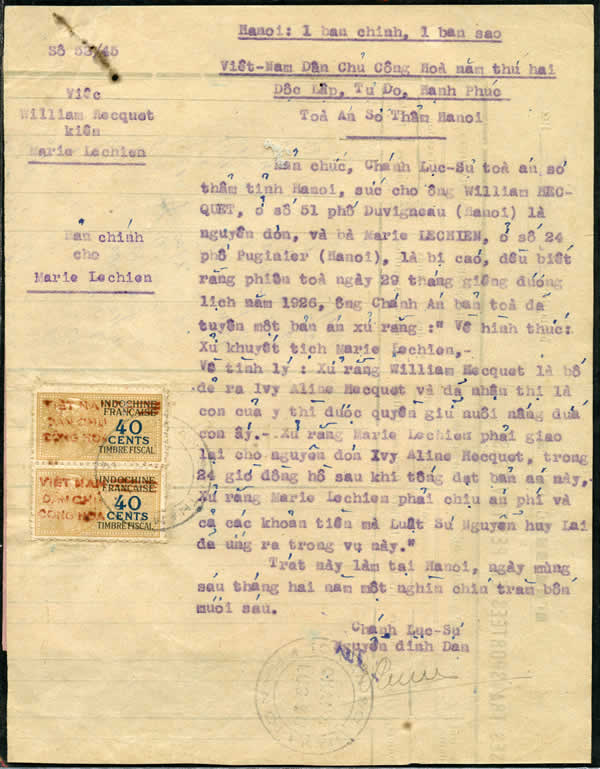 Hanoi: 1 ban chính, 1 ban sao
Số 53/45
Việt-Nam Dân Chủ Công Hoà năm thứ hai
Độc Lập, Tự Do, Hạnh Phúc
Toà Án Sơ Thẩm Hanoi
Việc
William Hecquet
kiện
Marie Lechien
Bản chính
cho
Marie Lechien
Bản chức, Chánh Lục-Sự toà án sơ
thẩm tỉnh Hanoi, sức cho ông William HEC-
QUET, ở số 51 phố Duvigneau (Hanoi) là
nguyên đơn, và bà Marie LECHIEN, ở số 24
phố Pugiaier (Hanoi), là bị cáo, đều biết
rằng phiên toà ngày 29 tháng giêng dương
lịch năm 1926, ông Chánh Án bản toà đã
tuyên một bản án xử rằng :" Về hình thức:
Xử khuyết tịch Marie Lechien,-
Về tình lý : Xử rằng William Hecquet là bố
đẻ ra Ivy Aline Hecquet và đã nhận thị là
con của y thì được quyền giữ nuôi nấng đứa
con ấy.- Xử rằng Marie Lechien phải giao
lại cho nguyên đơn Ivy Aline Hecquet, trong
24 giờ đồng hồ sau khi tống đạt bản án này,-
Xử rằng Marie Lechien phải chịu án phí và
cả các khoản tiền mà Luật Sư Nguyễn huy Lai
đã ứng ra trong vụ này."
Trát này làm tại Hanoi, ngày mùng
sáu tháng hai năm một nghìn chín trăm bốn
mươi sáu.
Chánh Lục-Sự
Nguyễn đình Dần
INDOCHINE
FRANÇAISE
40
CENTS
TIMBRE FISCAL
VIỆT NAM
DÂN CHỦ
CỘNG HÒA
INDOCHINE
FRANÇAISE
40
CENTS
TIMBRE FISCAL
VIỆT NAM
DÂN CHỦ
CỘNG HÒA